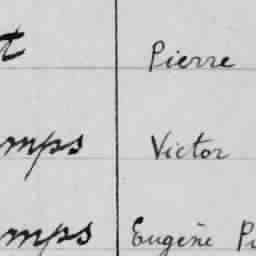 t Pierre
mps Victor
mps Eugène